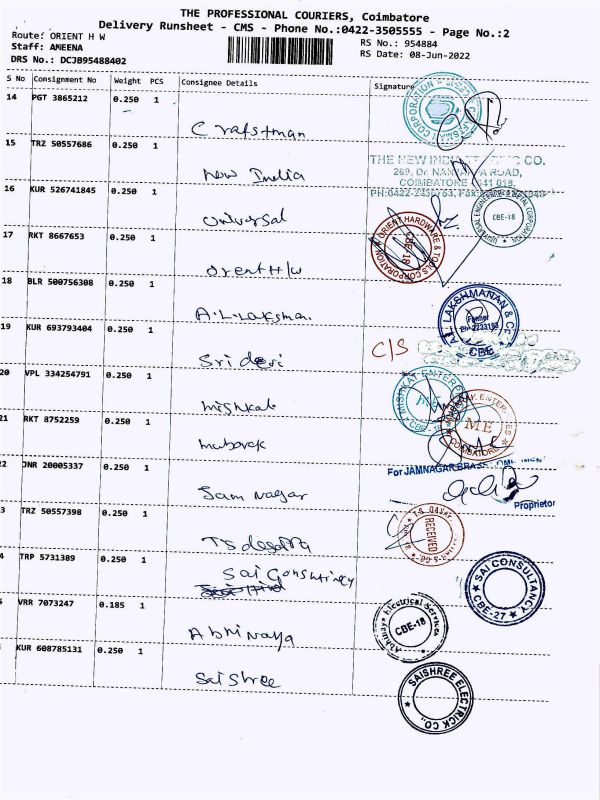 THE PROFESSIONAL COURIERS, Coimbatore
Delivery Runsheet - CMS - Phone No.:0422-3505555 - Page No.:2
Route: ORIENT H W
RS No.: 954884
Staff: AMEENA
RS Date: 08-Jun-2022
DRS No.: DCJB95488402
S No Consignment No Weight PCS Consignee Details Signature
14 PGT 3865212 0.250 1
Crafstman
15 TRZ 50557686 0.250 1
New India
THE NEW INDIA CO.
269, Dr. ROAD,
COIMBATORE 641 018.
16 KUR 526741845 0.250 1
Universal
CBE-18
17 RKT 8667653 0.250 1
Orent H/W
ORIENT HARDWARE & TOOLS CORPORATION
CBE-18
18 BLR 500756308 0.250 1
A.L.Laksman.
A.L. LAKSHMANAN & C
CBE
19 KUR 693793404 0.250 1
Sri devi
C/S
20 VPL 334254791 0.250 1
Mishkat
MISHKAY ENTERP
ME
CBE-18
21 RKT 8752259 0.250 1
Mubarak
ENTERPRISES
ME
COIMBATORE
2 JNR 20005337 0.250 1
Jam Nagar
For JAMNAGAR BRASS
Proprietor
3 TRZ 50557398 0.250 1
RECEIVED
4 TRP 5731389 0.250 1
Sai Consultncy
SAI CONSULTANCY
CBE-27
VRR 7073247 0.185 1
Abhinaya
Abhinaya Electrical Services
CBE-18
KUR 608785131 0.250 1
Saishree
SAISHREE ELECTRICK CO.,